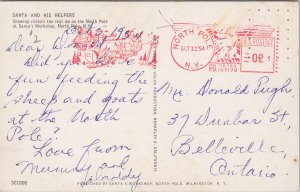 SANTA AND HIS HELPERS
Showing visitors the mail on to the North Pole
at Santa's Workshop, North Pole, N.Y.
Oct 13, 1964
Dear Donald,
Did you have
fun feeding the
sheep and goats
at the North
Pole?
Love from
Mummy and
Daddy
SC1809
NORTH POLE
OCT 13 '64
N.Y.
02
Mr. Donald Pugh
37 Dunbar St.
Belleville
Ontario
PUBLISHED BY SANTA'S WORKSHOP, NORTH POLE, WILMINGTON, N. Y.